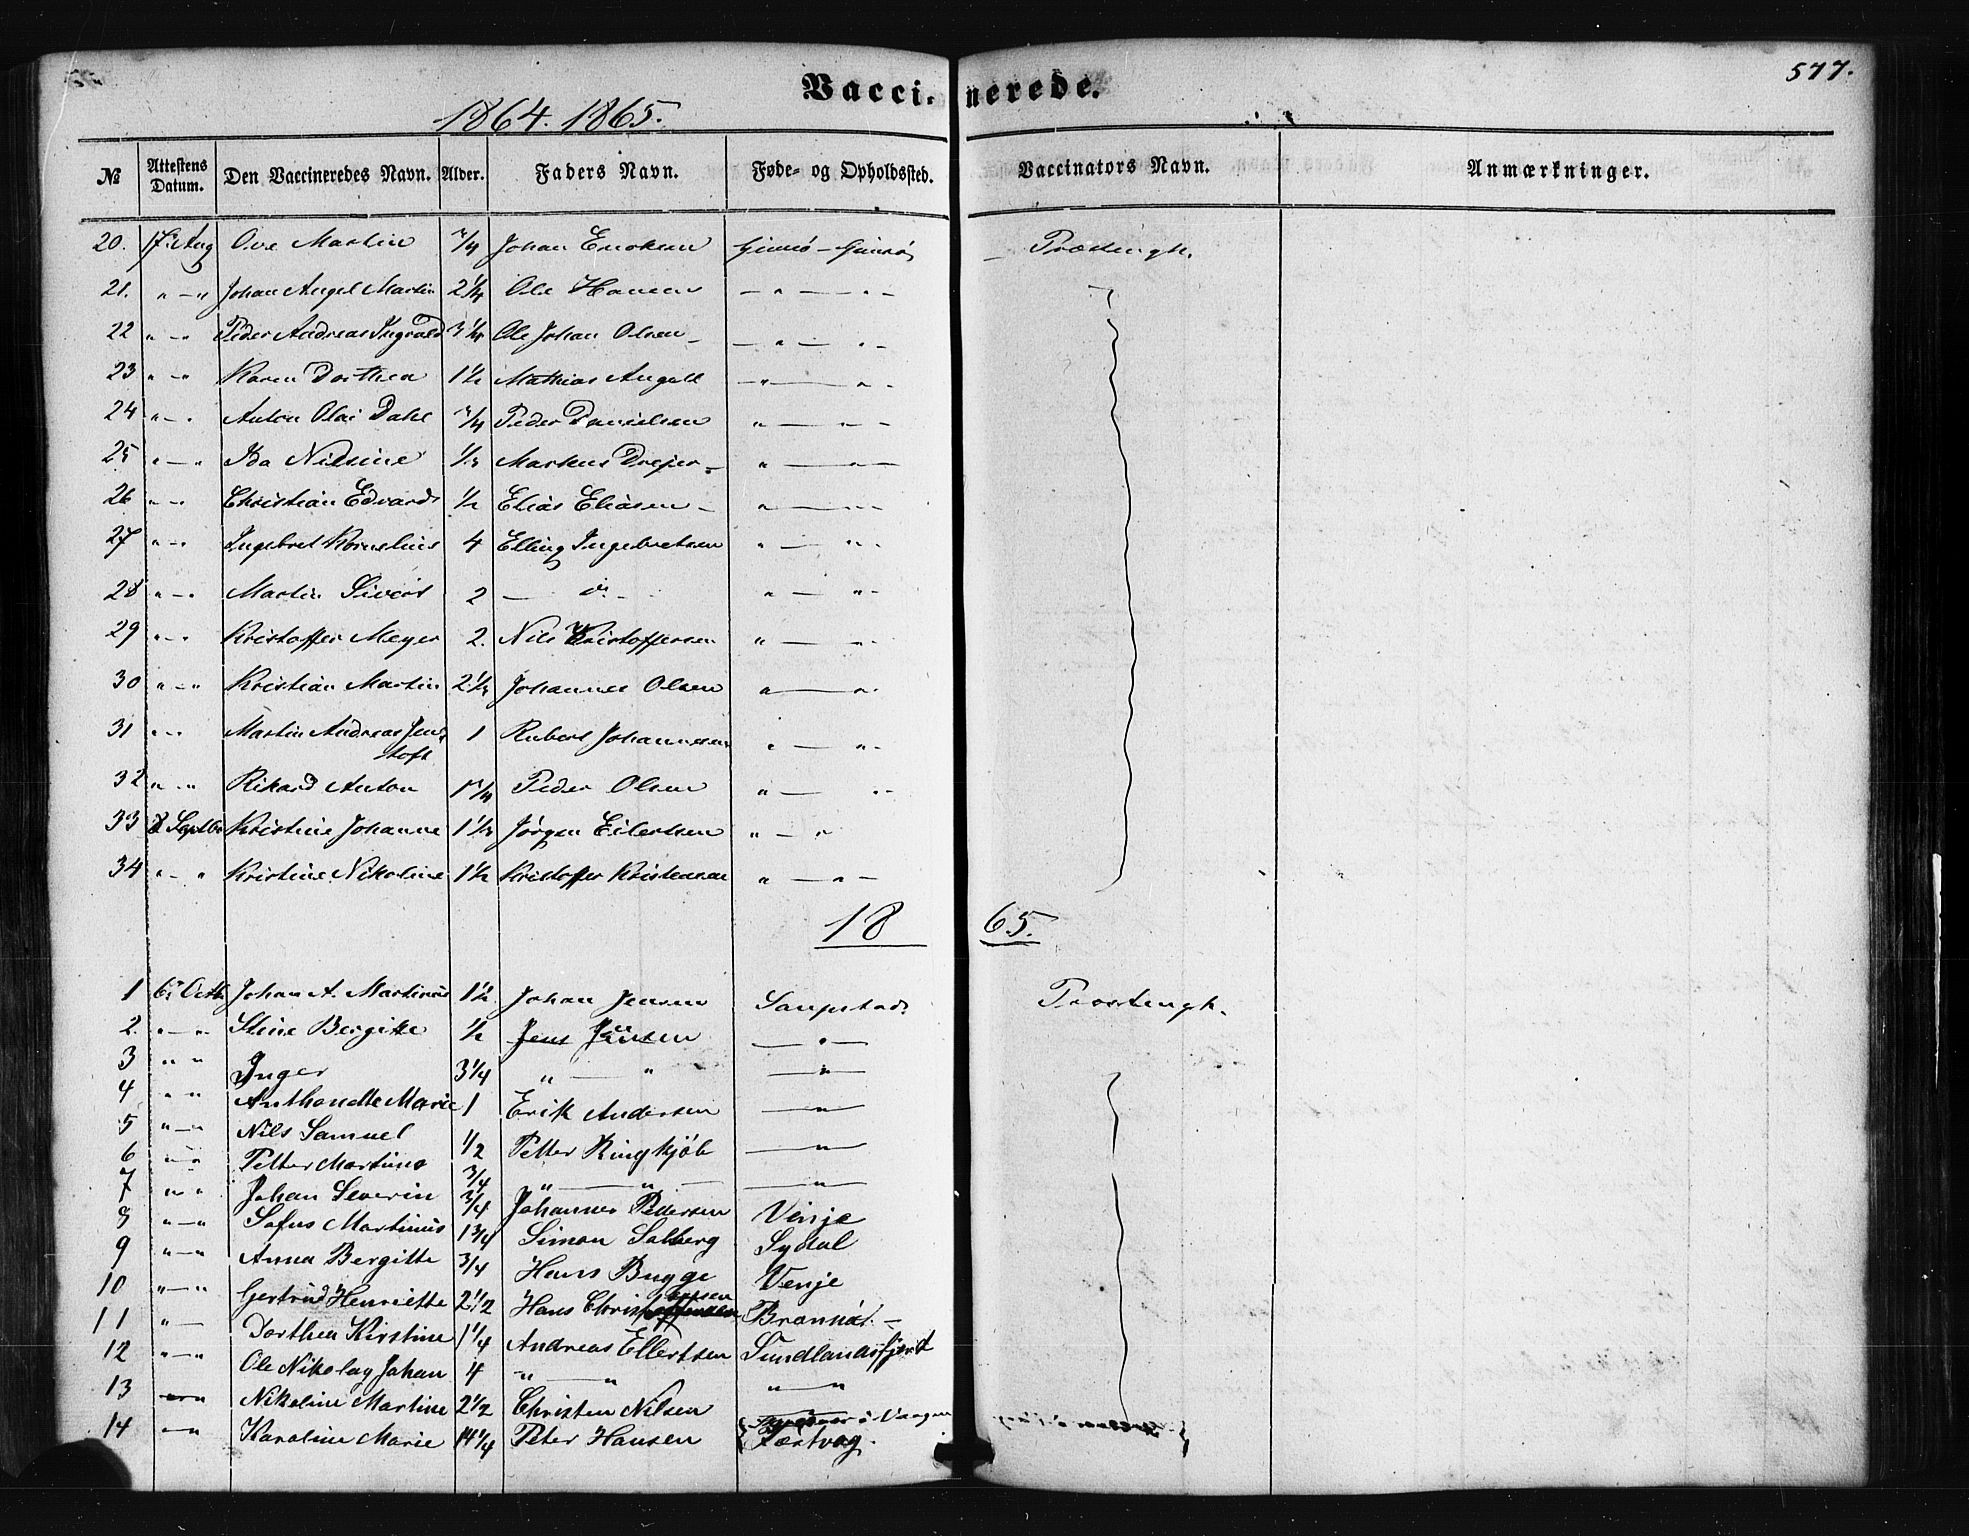 577.
Vaccinerede.
1864. 1865.
№ Attestens Datum. Den Vaccineredes Navn. Alder. Faders Navn. Føde- og Opholdssted. Vaccinators Navn. Anmærkninger.
20. 17 Aug Ove Martin 3/4 Johan Enoksen Gimsø – Gimsø
21. " — " Johan Angel Martin 2 1/4 Ole Hansen — " — " —
22 " — " Peder Andreas Ingvald 3 1/4 Ole Johan Olsen — " — " —
23 " — " Karen Dorthea 1 1/2 Mathias Angell — " — " —
24 " — " Anton Olai Dahl 3/4 Peder Danielsen " — " —
25 " — " Ida Nilsine 1/3 Markus Drejer " — " —
26 " — " Christian Edvard 1/2 Elias Eliasen " — " —
27 " — " Ingebret Kornelius 4 Elling Ingebretsen " — " —
28 " — " Martin Sivert 2 — do — " — " —
29 " — " Kristoffer Meyer 2. Nils Kristoffersen " — " —
30 " — " Kristian Martin 2 1/3 Johannes Olsen " — " —
31 " — " Martin Andreas Jen- 1 Rubert Johannesen " — " —
stoft
32 " — " Rikard Anton 1 3/4 Peder Olsen " — " —
33 8 Septbr Kristine Johanne 1 1/3 Jørgen Eilertsen " — "
34 " — " Kristine Nikoline 1 1/2 Kristoffer Kristensen " — " —
1865.
1 6 Octb Johan A. Martinus 1 1/2 Johan Jensen Saupstad
2. " — " Stine Bergitte 1/2 Jens Jensen — " —
3 " " Inger 3 1/4 " — " — " —
4 " " Anthonette Marie 1 Erik Andersen — " —
5 " — " Nils Samuel 1/2 Petter Ringkjøb — " —
6 " — " Petter Martinus 3/4 " — " — — " —
7 " — " Johan Severin 3/4 Johannes Pedersen Venje
8 " — " Sofus Martinus 1 3/4 Simon Solberg Sydal
9 " — " Anna Bergitte 3/4 Hans Bugge Venje
10 " — " Gertrud Henriette 2 1/2 Hans Christ
11 " — Dorthea Kirstine 1 1/4 Andreas Ellertsen Sundlandsfjord
12 " — " Ole Nikolay Johan 4 " — " " — "
13 " — " Nikoline Martine 2 1/2 Christen Nilsen
14 " — " Karoline Marie 14 1/4 Peter Hansen